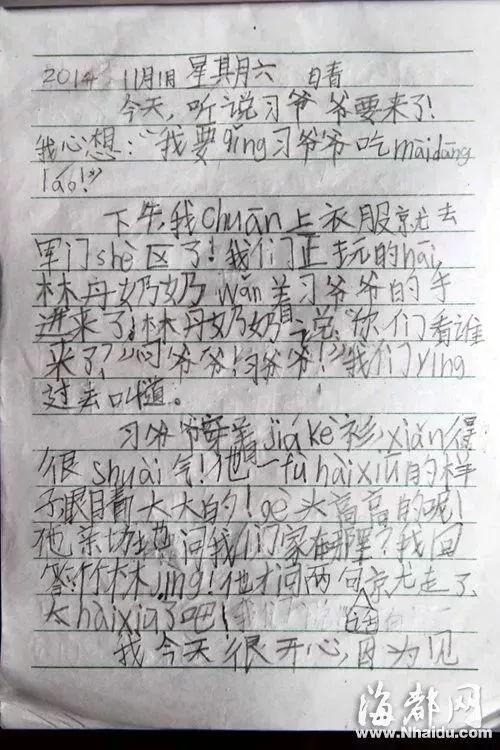 2014 11月1日 星其月六 日青
今天,听说习爷爷要来了!
我心想:“我要qǐng习爷爷吃màidāng
láo!”
下午,我chuān上衣服就去
军门shè区了!我们正玩的hāi,
林丹奶奶wǎn羊习爷爷的手
进来了,林丹奶奶说“你们看谁
来了?”“习爷爷!习爷爷!”我们yíng
过去叫道。
习爷爷穿着jiákè衫,xiǎn得
很shuài气!他一fù hàixiū的样
子眼睛大大的!gè头高高的呢!
他亲切地问我们家在哪里?我回
答:竹林jìng!他才问两句就走了
太hàixiū了吧!
话
我今天很开心,因为见
海都网
www.Nhaidu.com